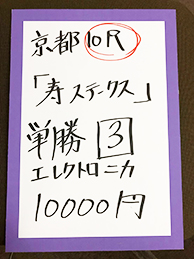 京都10R
「寿ステークス」
単勝 3
エレクトロニカ
10000円